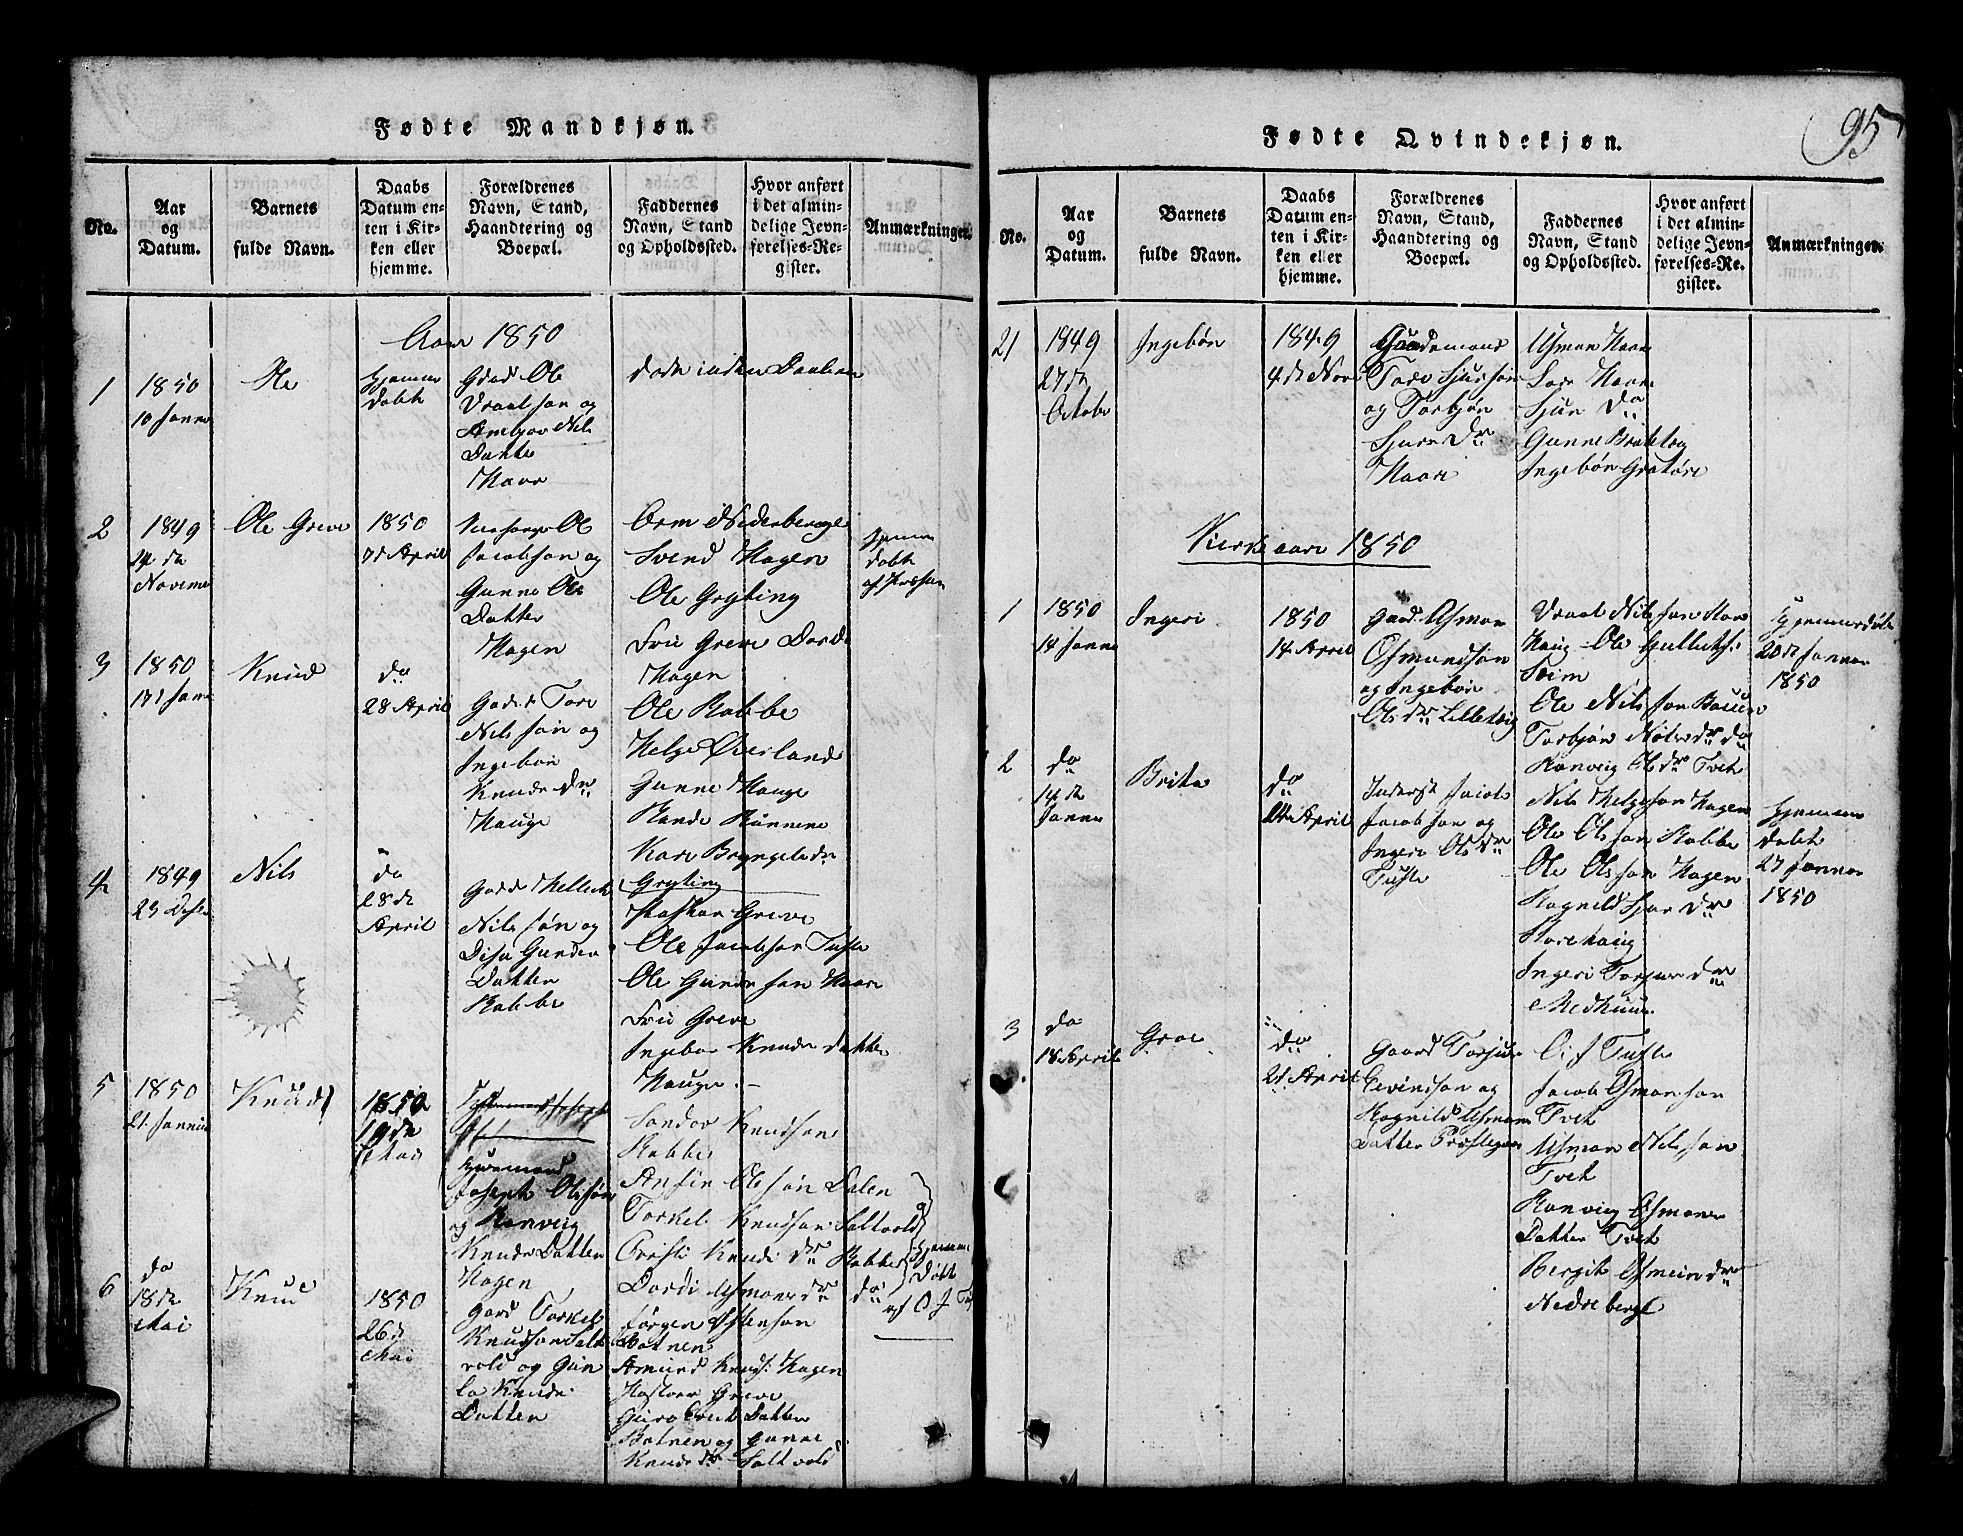 95
Fødte Mandkjøn.
No.
Aar
og
Datum.
Barnets
fulde Navn.
Daabs
Datum en-
ten i Kir-
ken eller
hjemme.
Forældrenes
Navn, Stand,
Haandtering og
Boepæl.
Faddernes
Navn, Stand
og Opholdssted.
Hvor anført
i det almin-
delige Jevn-
førelses-Re-
gister.
Anmærkninger.
Aar 1850
1
1850
10 Janua
Ole
Hjemme
døbt
Gdsd Ole
Vraalsøn og
Nils
Datter
Haave
døde inden Daaben
2
1849
24 de
Novemb
Ole Greve
1850
7de April
Ole
Jacobsøn og
Gunne Ols
Datter
Hagen
Orm Nederberge
Svend Hagen
Ole Gryting
Frü Greve Dorde
Hagen
hjemme
døbt
3
1850
Janu
Knud
do
28 April
Gaard Tore
Nilssøn og
Ingebør
Knuds Dr
Hauge
Ole Rabbe
Helge Øverland
Gunne Hauge
Rande Rønnene
Kari Bryngelsdr
Gryting
4
1849
23 Decbr
Nils
do
28 de
April
Gaard Hellek
Nilssøn og
Disa Gunder
Datter
Rabbe
Greve
Ole Jacobsøn Tufte
Ole Gundersøn Haave
Frü Greve
Ingebør Knuds datter
Hauge
5
1850
21 Janua
Knud
1850
19de
Mai
Huusmand
Joseph Olssøn
og Ranveig
Knuds Datter
Hagen
Sondor Knudsøn
Rabbe
Anfin Olssøn Dalen
Torkel Knudsøn Saltvold
Cristi Knuds dr Rabbe
Dordi Asmonsdr do
Hjemme
Døbt
af O J Tuf
6
do
18de
Mai
Knud
1850
26 d
Mai
Gaard Torkel
Knudsøn Salt
vold og Gun
la Knuds
Datter
Jørgen Østensøn
Botnen
Amund Knuds: Hagen
Greve
Guro Datter
Botnen og Gunne
Knuds dr Saltvold
Fødte Qvindekjøn.
No.
Aar
og
Datum.
Barnets
fulde Navn.
Daabs
Datum en-
ten i Kir-
ken eller
hjemme.
Forældrenes
Navn, Stand,
Haandtering og
Boepæl.
Faddernes
Navn, Stand
og Opholdssted.
Hvor anført
i det almin-
delige Jevn-
førelses-Re-
gister.
Anmærkninger.
21
1849
27 de
Octobr
Ingebør
1849
4 de Nov
Gaardmand
Tore Sjursøn
og Torbjør
Sjurs Dr
Haave
Asmon Haave
Lars Haave
Sjur do
Gunne Bratteteg
Ingebør Grotøre
Kirkeaaret 1850
1
1850
14 Janua
Ingeri
1850
14 April
Gaard Asmon
Osmundsøn
og Ingebør
Ols dr Lilleteig
Vraal Nilssøn Hov
Haug Ole Gulleks:
Seim
Ole Nilssøn
Torbjør Nilsdr do
Ranveig Olsdr Tveit
Hjemmedøbt
20de Januar
1850
2
do
14 de
Janua
Brita
do
April
Inderst Jacob
Jacobsøn og
Ingeri Olsdr
Tufte
Nils Helgesøn Hagen
Ole Olssøn Rabbe
Ole Olssøn Hagen
Ragnild Sjur Dr
Rorehaug
Ingeri Torjus dr
Medhuus
Hjemme
Døbt
27 Januar
1850
3
do
18 April
Groe
do
21 April
Gaard Torjus
Eivindsøn og
Ragnild Asmon
Datter Præstegaar
O. J Tufte
Jacob Osmonsøn
Tveit
Asmon Nilssøn
Tveit
Ranveig Osmons
Datter Tveit
Bergit Osmonsdr
Nedreberge